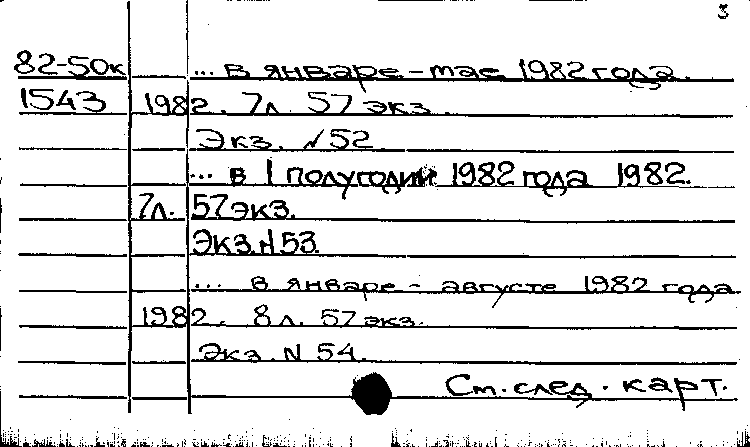 3
82-50к ... в январе-мае 1982 года.
1543 1982. 7л. 57 экз.
Экз. N52
... в I полугодии 1982 года 1982.
7л. 57 экз.
Экз. N 53.
... в январе - августе 1982 года
1982. 8л. 57 экз.
Экз. N 54.
См. след. карт.